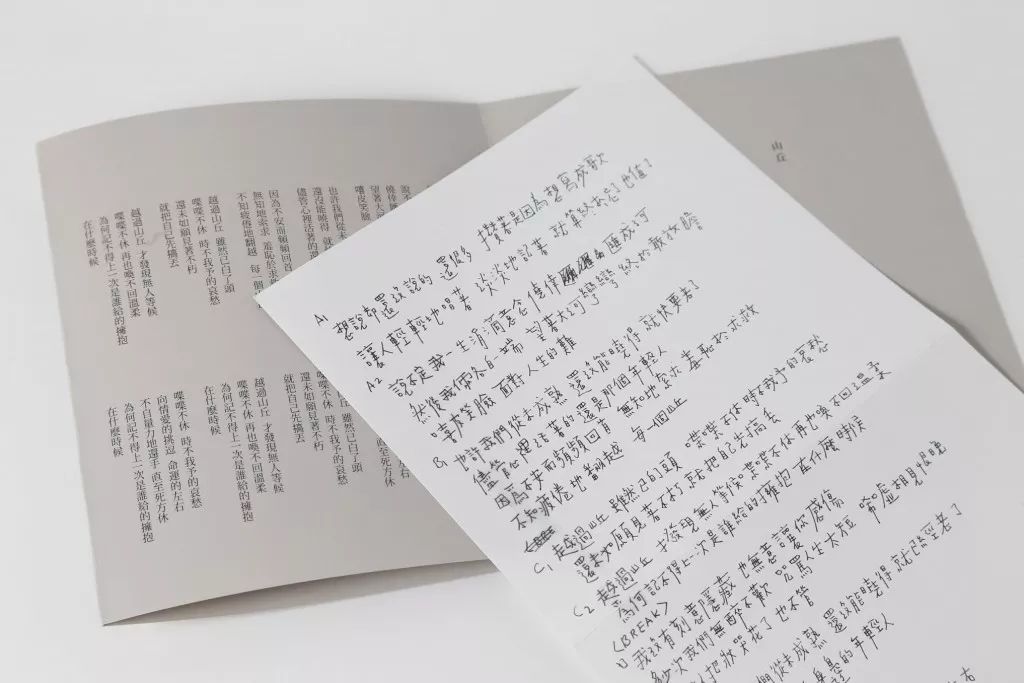 山丘
說不
僥倖
望著大
嘻皮笑臉
也許我們從未
還沒能曉得 就
儘管心裡活著的還
因為不安而頻頻回首
無知地索求 羞恥於求救
不知疲倦地翻越 每一個
越過山丘 雖然已白了頭
喋喋不休 時不我予的哀愁
還未如願見著不朽
就把自己先搞丟
越過山丘 才發現無人等候
喋喋不休 再也喚不回溫柔
為何記不得上一次是誰給的擁抱
在什麼時候
雖然已白了頭
時不我予的哀愁
還未如願見著不朽
就把自己先搞丟
越過山丘 才發現無人等候
喋喋不休 再也喚不回溫柔
為何記不得上一次是誰給的擁抱
在什麼時候
喋喋不休 時不我予的哀愁
向情愛的挑逗 命運的左右
不自量力地還手 直至死方休
為何記不得上一次是誰給的擁抱
在什麼時候
A1 想說卻還沒說的 還很多 攢著是因為想寫成歌
讓人輕輕地唱著 淡淡地記著 就算終於忘了 也值了
A2 說不定我一生涓滴意念 僥倖匯成河
然後我倆各自一端 望著大河彎彎 終於敢放膽
嘻皮笑臉 面對 人生的難
B1 也許我們從未成熟 還沒能曉得 就快要老了
儘管心裡活著的還是那個年輕人
因為不安而頻頻回首 無知地索求 羞恥於求救
不知疲倦地翻越 每一個山丘
C1 越過山丘 雖然已白了頭 喋喋不休 時不我予的哀愁
還未如願見著不朽 就把自己先搞丟
C2 越過山丘 才發現無人等候 喋喋不休 再也喚不回了溫柔
為何記不得上一次是誰給的擁抱 在什麼時候
(BREAK)
我沒有刻意隱藏 也無意讓你感傷
多少次我們無醉不歡 咒罵人生太短 唏噓相見恨晚
人把妝哭花了 也不管
們從未成熟 還沒能曉得 就已經老了
的年輕人